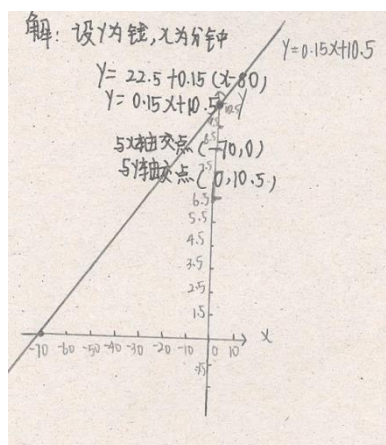 解：设Y为钱,x为分钟
Y=0.15x+10.5
Y=22.5+0.15(x-80)
Y=0.15x+10.5
10.5
Y
与x轴交点(-70,0)
与Y轴交点(0,10.5)
6.5
5.5
4.5
3.5
2.5
1.5
-70 -60 -50 -40 -30 -20 -10 0 10 x